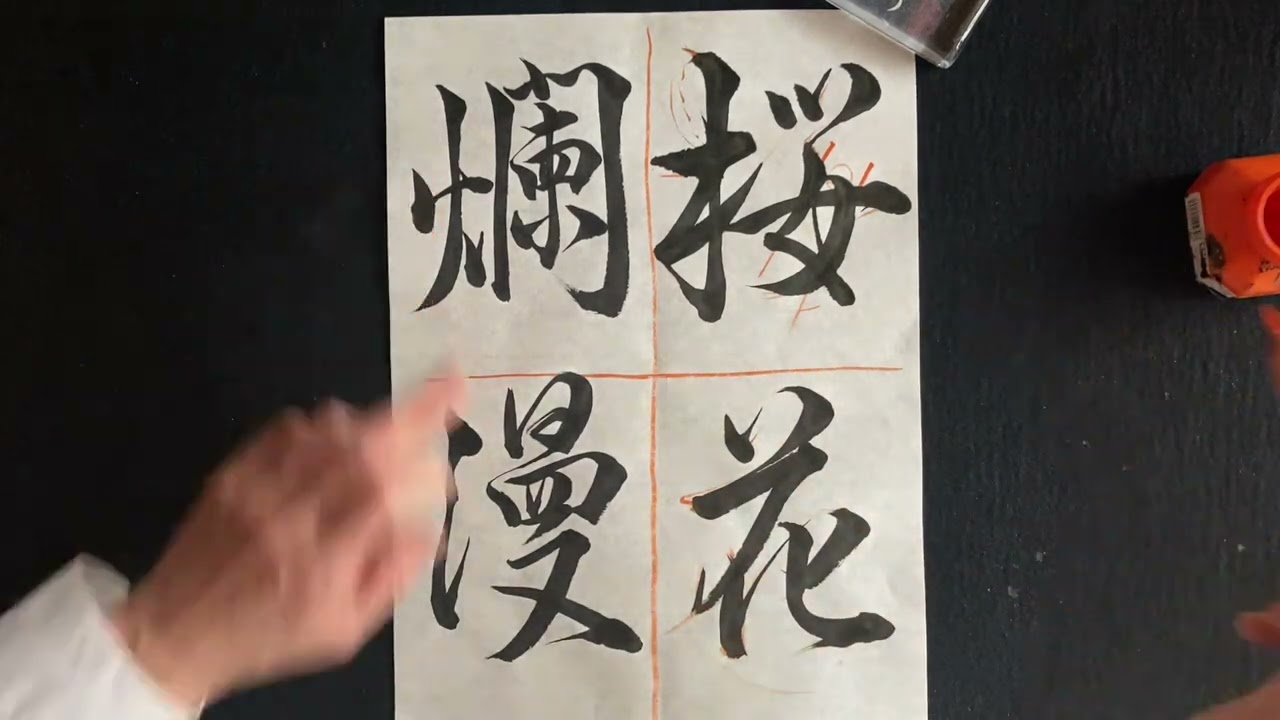 桜花
爛漫